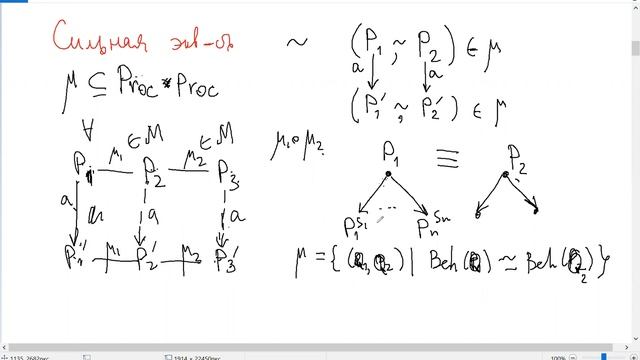 Сильная экв-ть ~
(P₁ ~, P₂) ∈ μ
a a
(P₁' ~, P₂') ∈ μ
μ ⊆ Proc * Proc
∀ ∈ M ∈ M
P₁ μ₁ P₂ μ₂ P₃
a a a
P₁' μ₁ P₂' μ₂ P₃'
μ₁∘μ₂
P₁ ≡ P₂
...
P₁^S₁ Pₙ^Sₙ
μ = { ( , ₂) | Beh( ) ≃ Beh( ₂) }
1135, 2682пкс 1914 × 22450пкс 100%